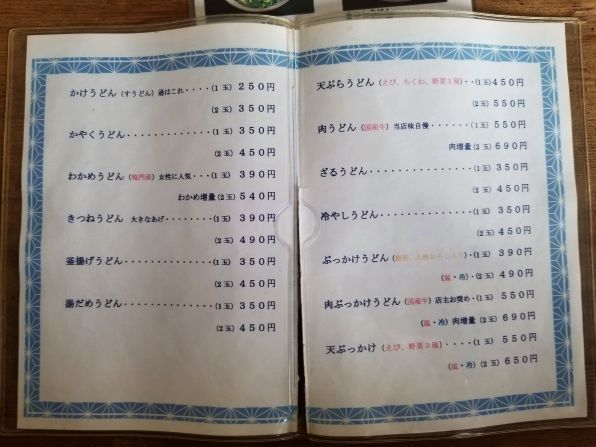 かけうどん（すうどん）通はこれ・・・・(１玉) ２５０円
(２玉) ３５０円
かやくうどん・・・・・・・・・・・・・(１玉) ３５０円
(２玉) ４５０円
わかめうどん（鳴門産）女性に人気・・・(１玉) ３９０円
わかめ増量(２玉) ５４０円
きつねうどん 大きなあげ・・・・・・・・(１玉) ３９０円
(２玉) ４９０円
釜揚げうどん・・・・・・・・・・・・・(１玉) ３５０円
(２玉) ４５０円
湯だめうどん・・・・・・・・・・・・・(１玉) ３５０円
(２玉) ４５０円
天ぷらうどん（えび、ちくわ、野菜１種）・・(１玉)４５０円
(２玉) ５５０円
肉うどん（国産牛）当店味自慢・・・・・・・(１玉) ５５０円
肉増量(２玉) ６９０円
ざるうどん・・・・・・・・・・・・・・(１玉) ３５０円
(２玉) ４５０円
冷やしうどん・・・・・・・・・・・・・(１玉) ３５０円
(２玉) ４５０円
ぶっかけうどん（大根おろし入り）・(１玉) ３９０円
(温・冷)・(２玉) ４９０円
肉ぶっかけうどん（国産牛）店主お奨め・(１玉) ５５０円
(温・冷) 肉増量 (２玉) ６９０円
天ぶっかけ（えび、野菜３種）・・・・(１玉) ５５０円
(温・冷) (２玉) ６５０円